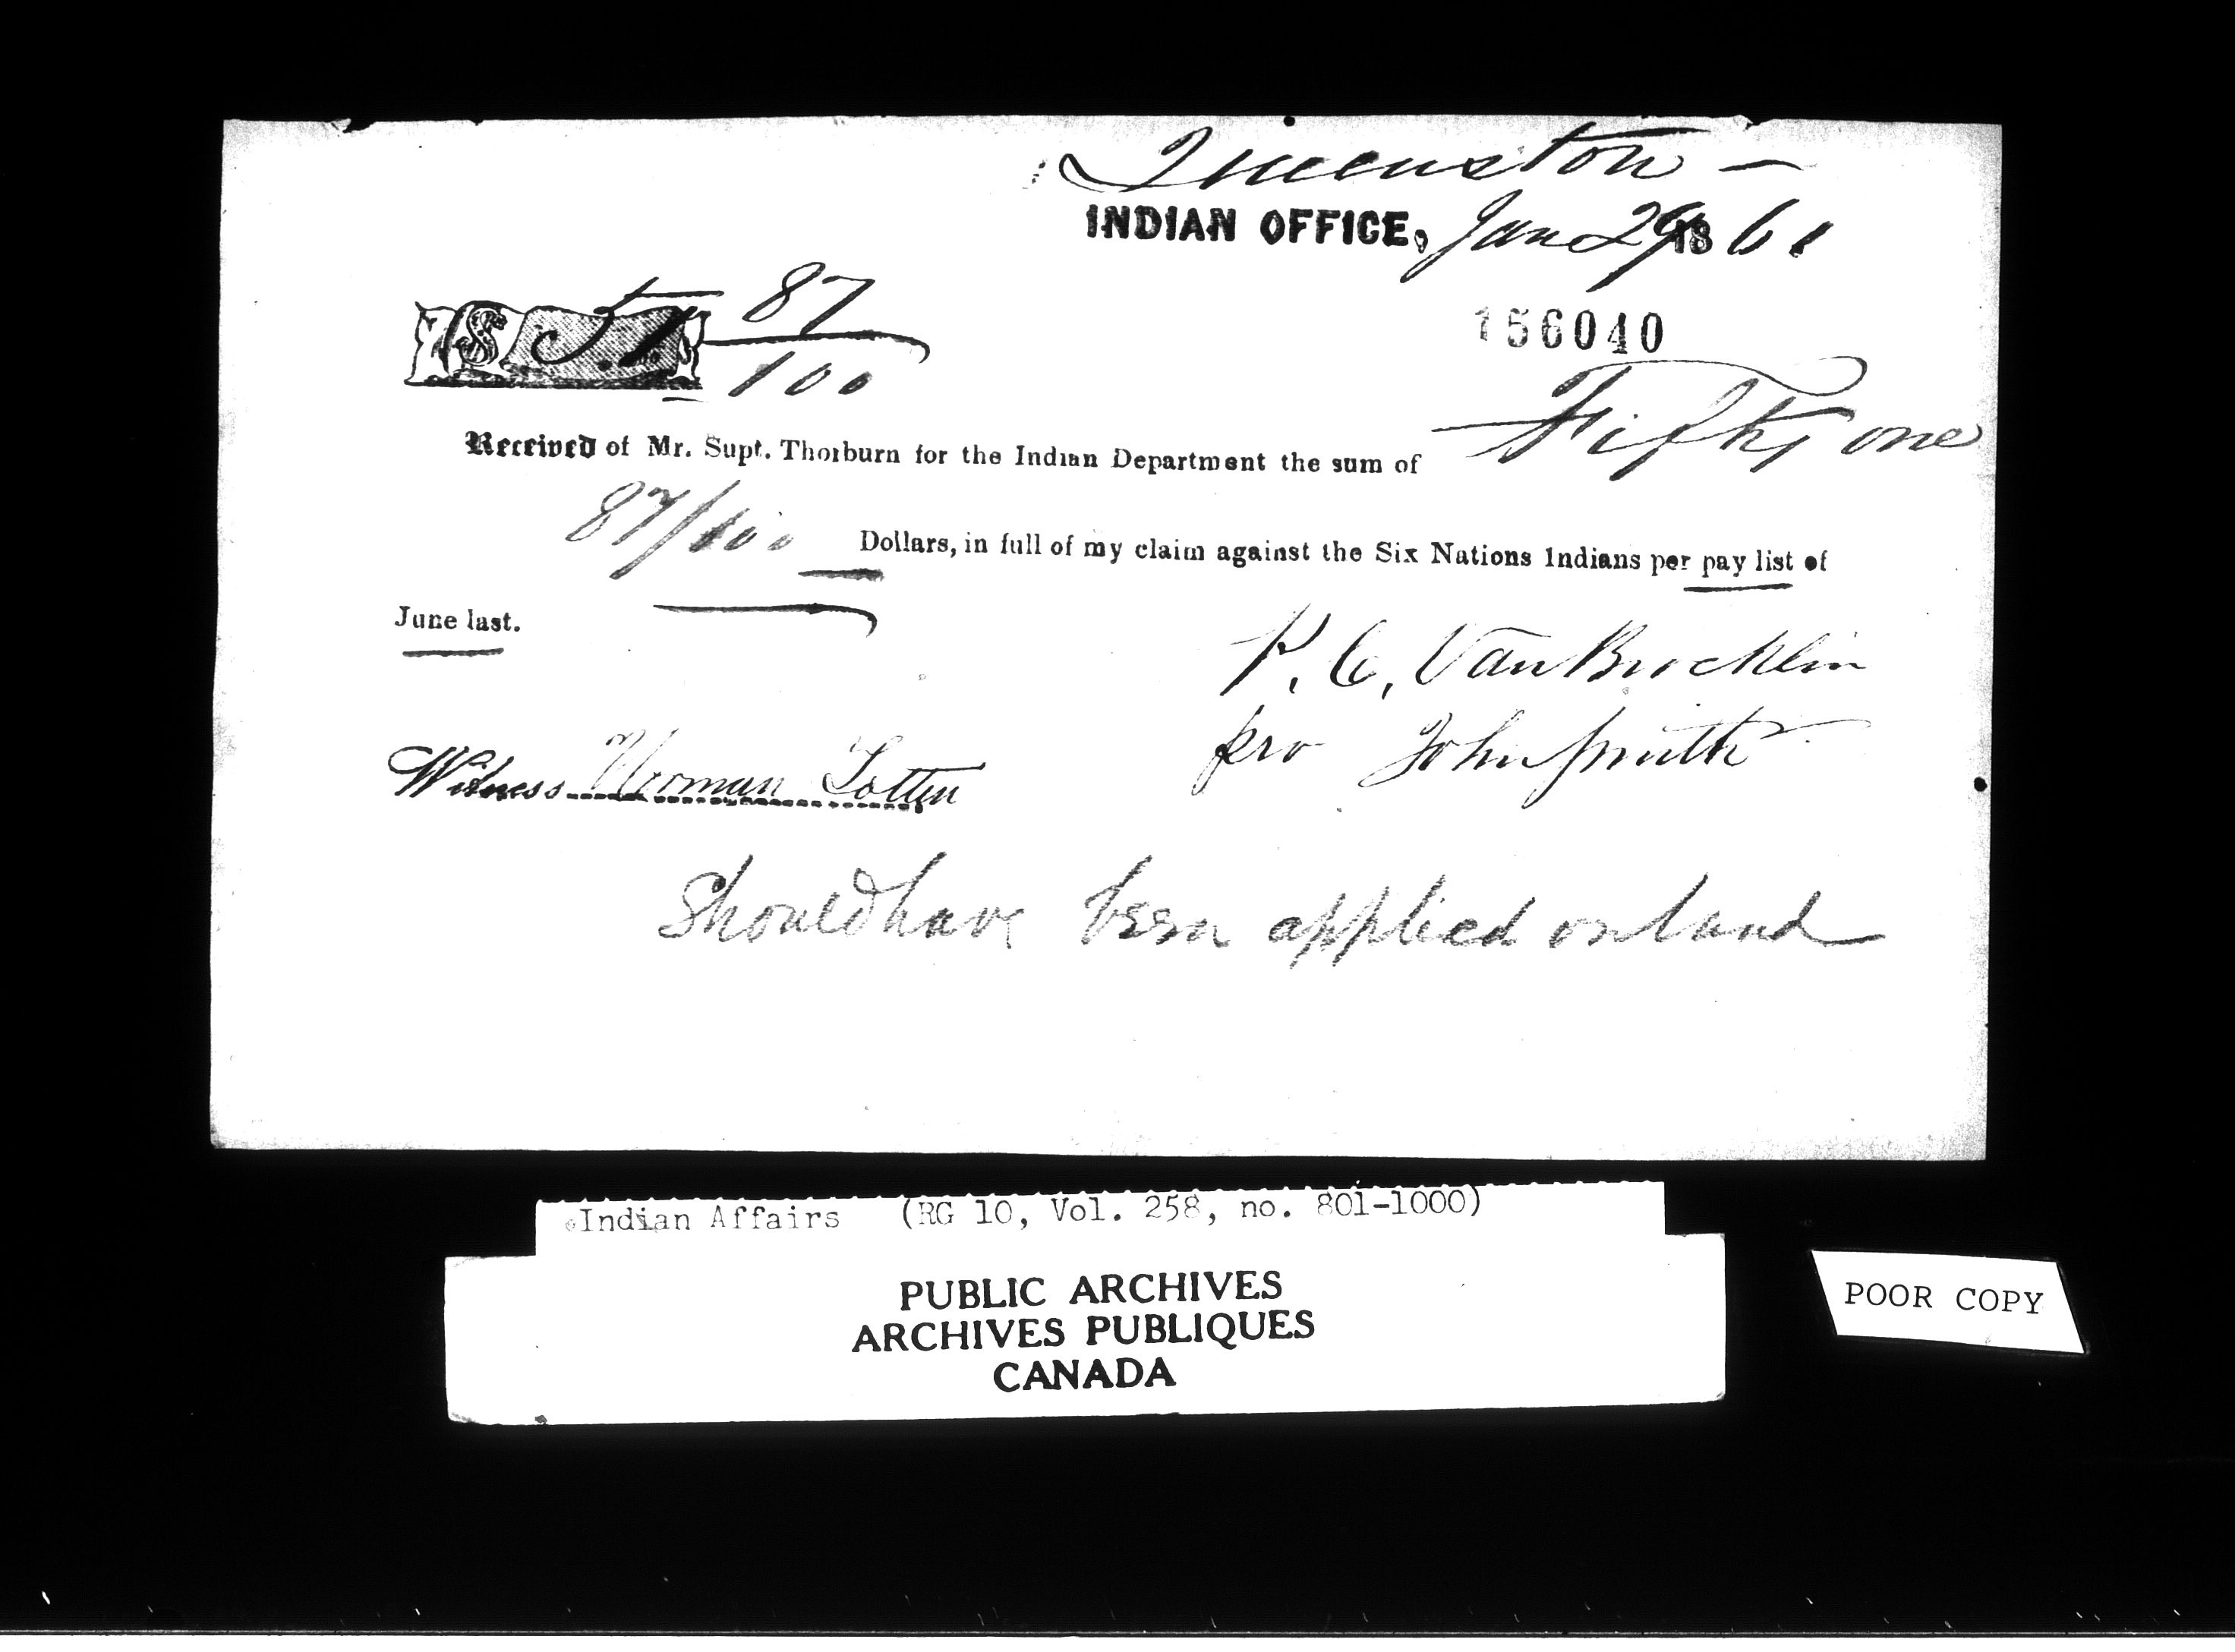 Queenston —
INDIAN OFFICE, Jan 29 1861
$ 51 87/100
156040
Received of Mr. Supt. Thorburn for the Indian Department the sum of Fifty one
87/100 Dollars, in full of my claim against the Six Nations Indians per pay list of
June last.
P. C. VanBrocklin
pro John Smith
Witness Norman Totten
Should have been applied on land
Indian Affairs (RG 10, Vol. 258, no. 801-1000)
PUBLIC ARCHIVES
ARCHIVES PUBLIQUES
CANADA
POOR COPY